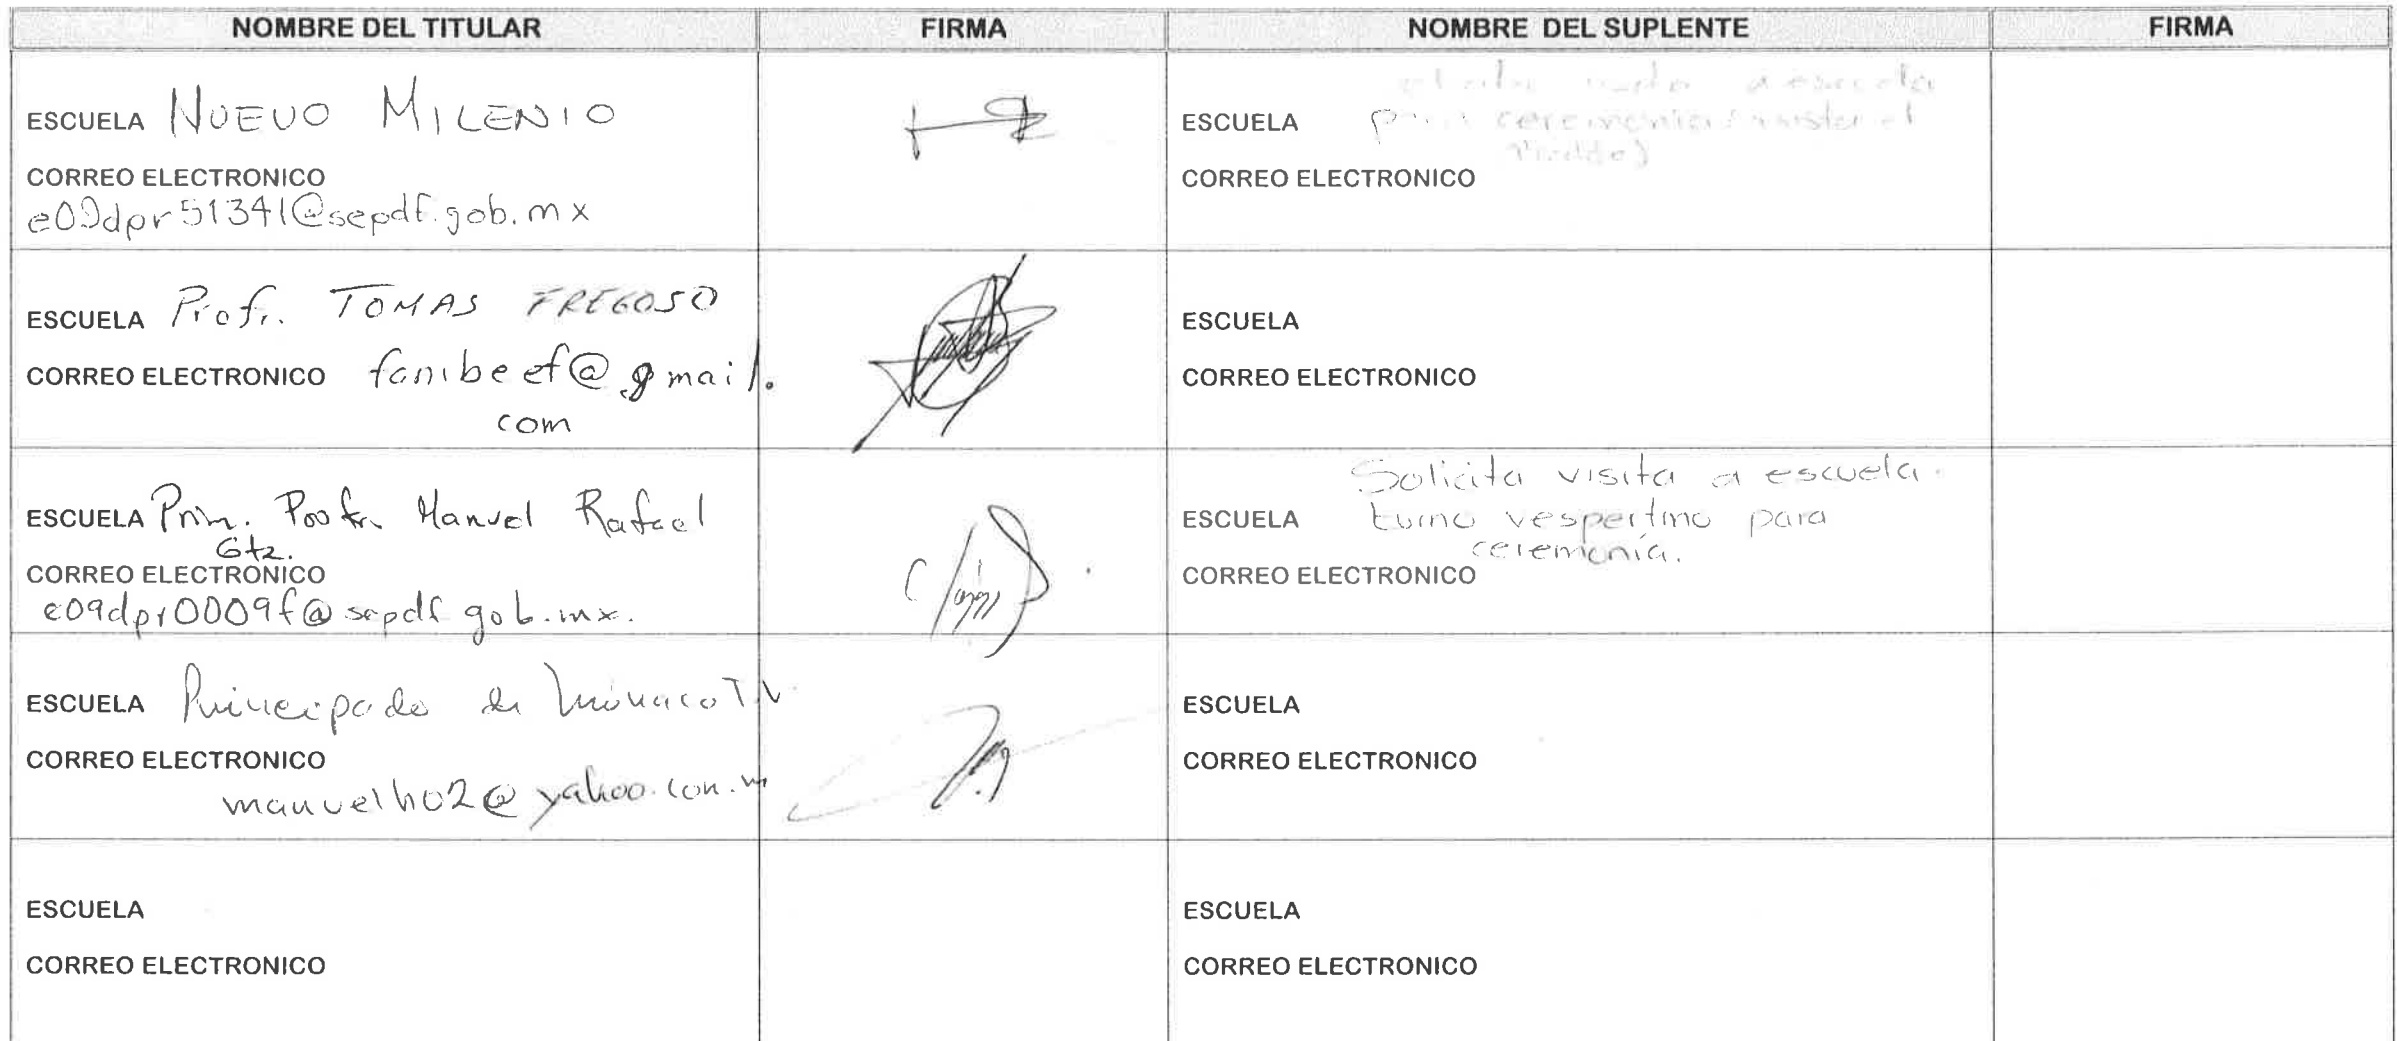 NOMBRE DEL TITULAR FIRMA NOMBRE DEL SUPLENTE FIRMA
ESCUELA NUEVO MILENIO
CORREO ELECTRONICO
e09dpr51341@sepdf.gob.mx
a escuela
ESCUELA para ceremonia
CORREO ELECTRONICO
ESCUELA Profr. TOMAS FREGOSO
CORREO ELECTRONICO fanibeef@gmail.
com
ESCUELA
CORREO ELECTRONICO
ESCUELA Prim. Profr. Manuel Rafael
Gtz.
CORREO ELECTRONICO
e09dpr0009f@sepdf.gob.mx.
Solicita visita a escuela.
ESCUELA turno vespertino para
ceremonia.
CORREO ELECTRONICO
ESCUELA Principado de Mónaco T.V.
CORREO ELECTRONICO
manuelh02@yahoo.com.m
ESCUELA
CORREO ELECTRONICO
ESCUELA
CORREO ELECTRONICO
ESCUELA
CORREO ELECTRONICO